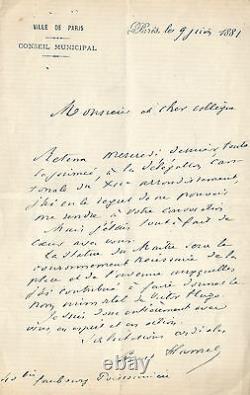 VILLE DE PARIS
CONSEIL MUNICIPAL
Paris, le 9 juin 1881
Monsieur et cher collègue
Retenu mercredi dernier toute
la journée, à la délégation can-
tonale du arrondissement,
j'ai eu le regret de ne pouvoir
me rendre à votre convocation
Mais j'étais tout à fait de
cœur avec vous.
La statue du Maître sera le
couronnement nécessaire de la
place et de l'avenue auxquelles
j'ai contribué à faire donner le
nom immortel de Victor Hugo.
Je suis donc entièrement avec
vous en esprit et en action.
Salutations cordiales
Hamel
faubourg Poissonnière